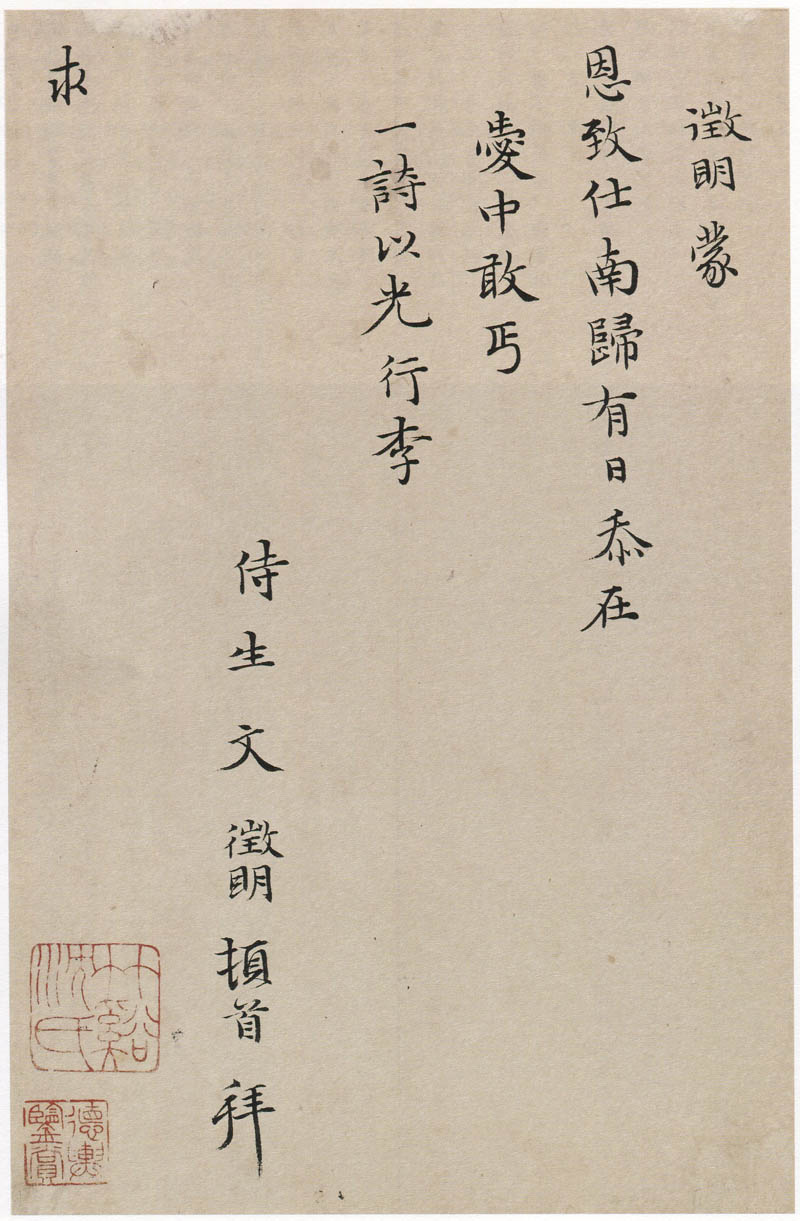 徵明蒙
恩致仕南歸有日忝在
愛中敢丐
一詩以光行李
侍生文徵明頓首拜
求
德輿鑒賞